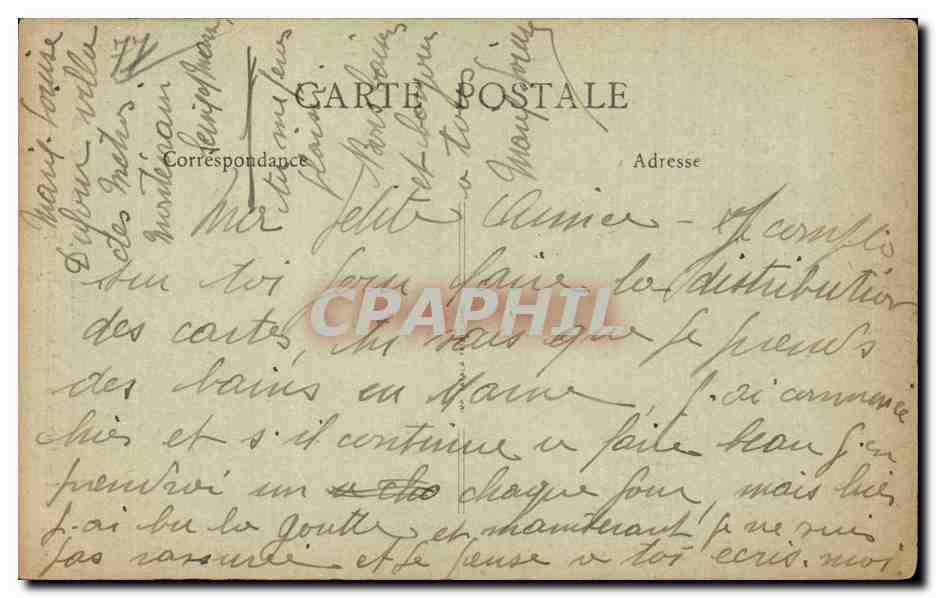 CARTE POSTALE
Correspondance
Adresse
Ma petite Aimée - Je compte
sur toi pour faire la distribution
des cartes, tu vois que je prends
des bains en Marne, j'ai commencé
hier et s'il continue a faire beau j'en
prendrai un chaque jour, mais hier
j'ai bu la goutte et maintenant je ne suis
pas rassurée et je pense a toi ecris-moi.
tu me feras
plaisir
Bons baisers
et bonjour
a toi
Marie Louise
Marie Louise
villa
des
77
CPAPHIL